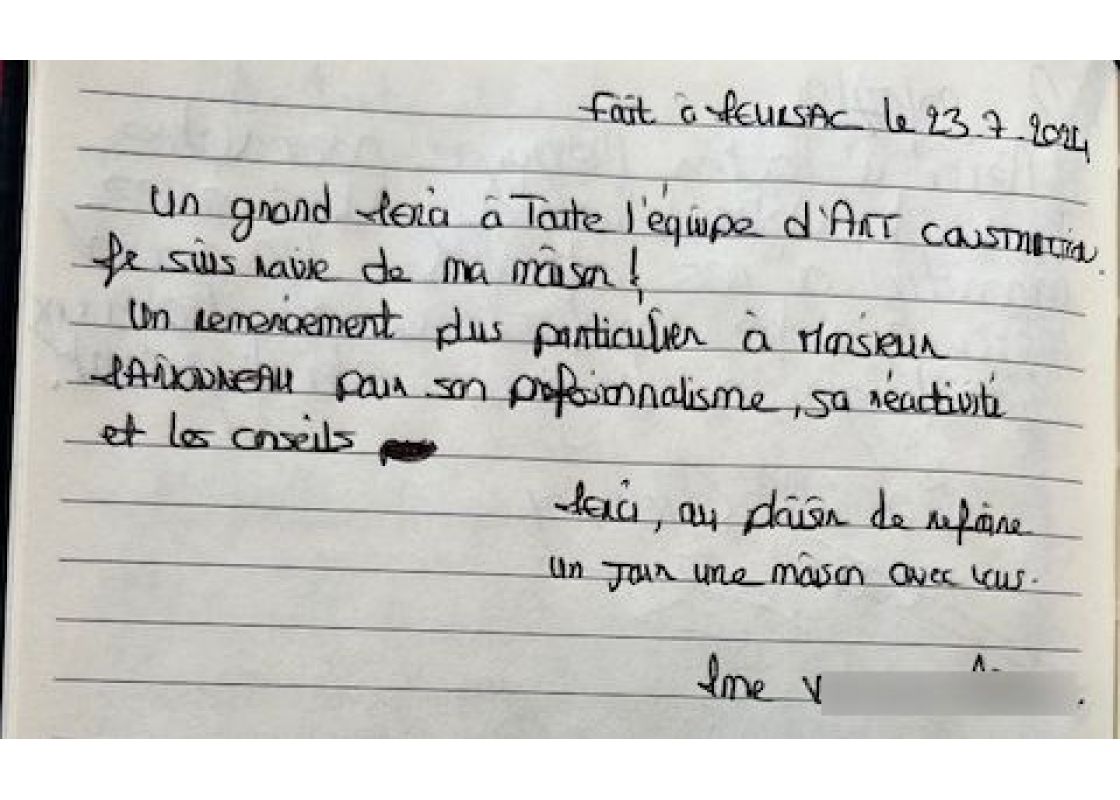 Fait à MEURSAC le 23.7.2024
Un grand Merci à Toute l'équipe d'ART CONSTRUCTION.
Je suis ravie de ma maison !
Un remerciement plus particulier à Monsieur
pour son professionnalisme, sa réactivité
et les conseils
Merci, au plaisir de refaire
un jour une maison avec vous.
Mme V